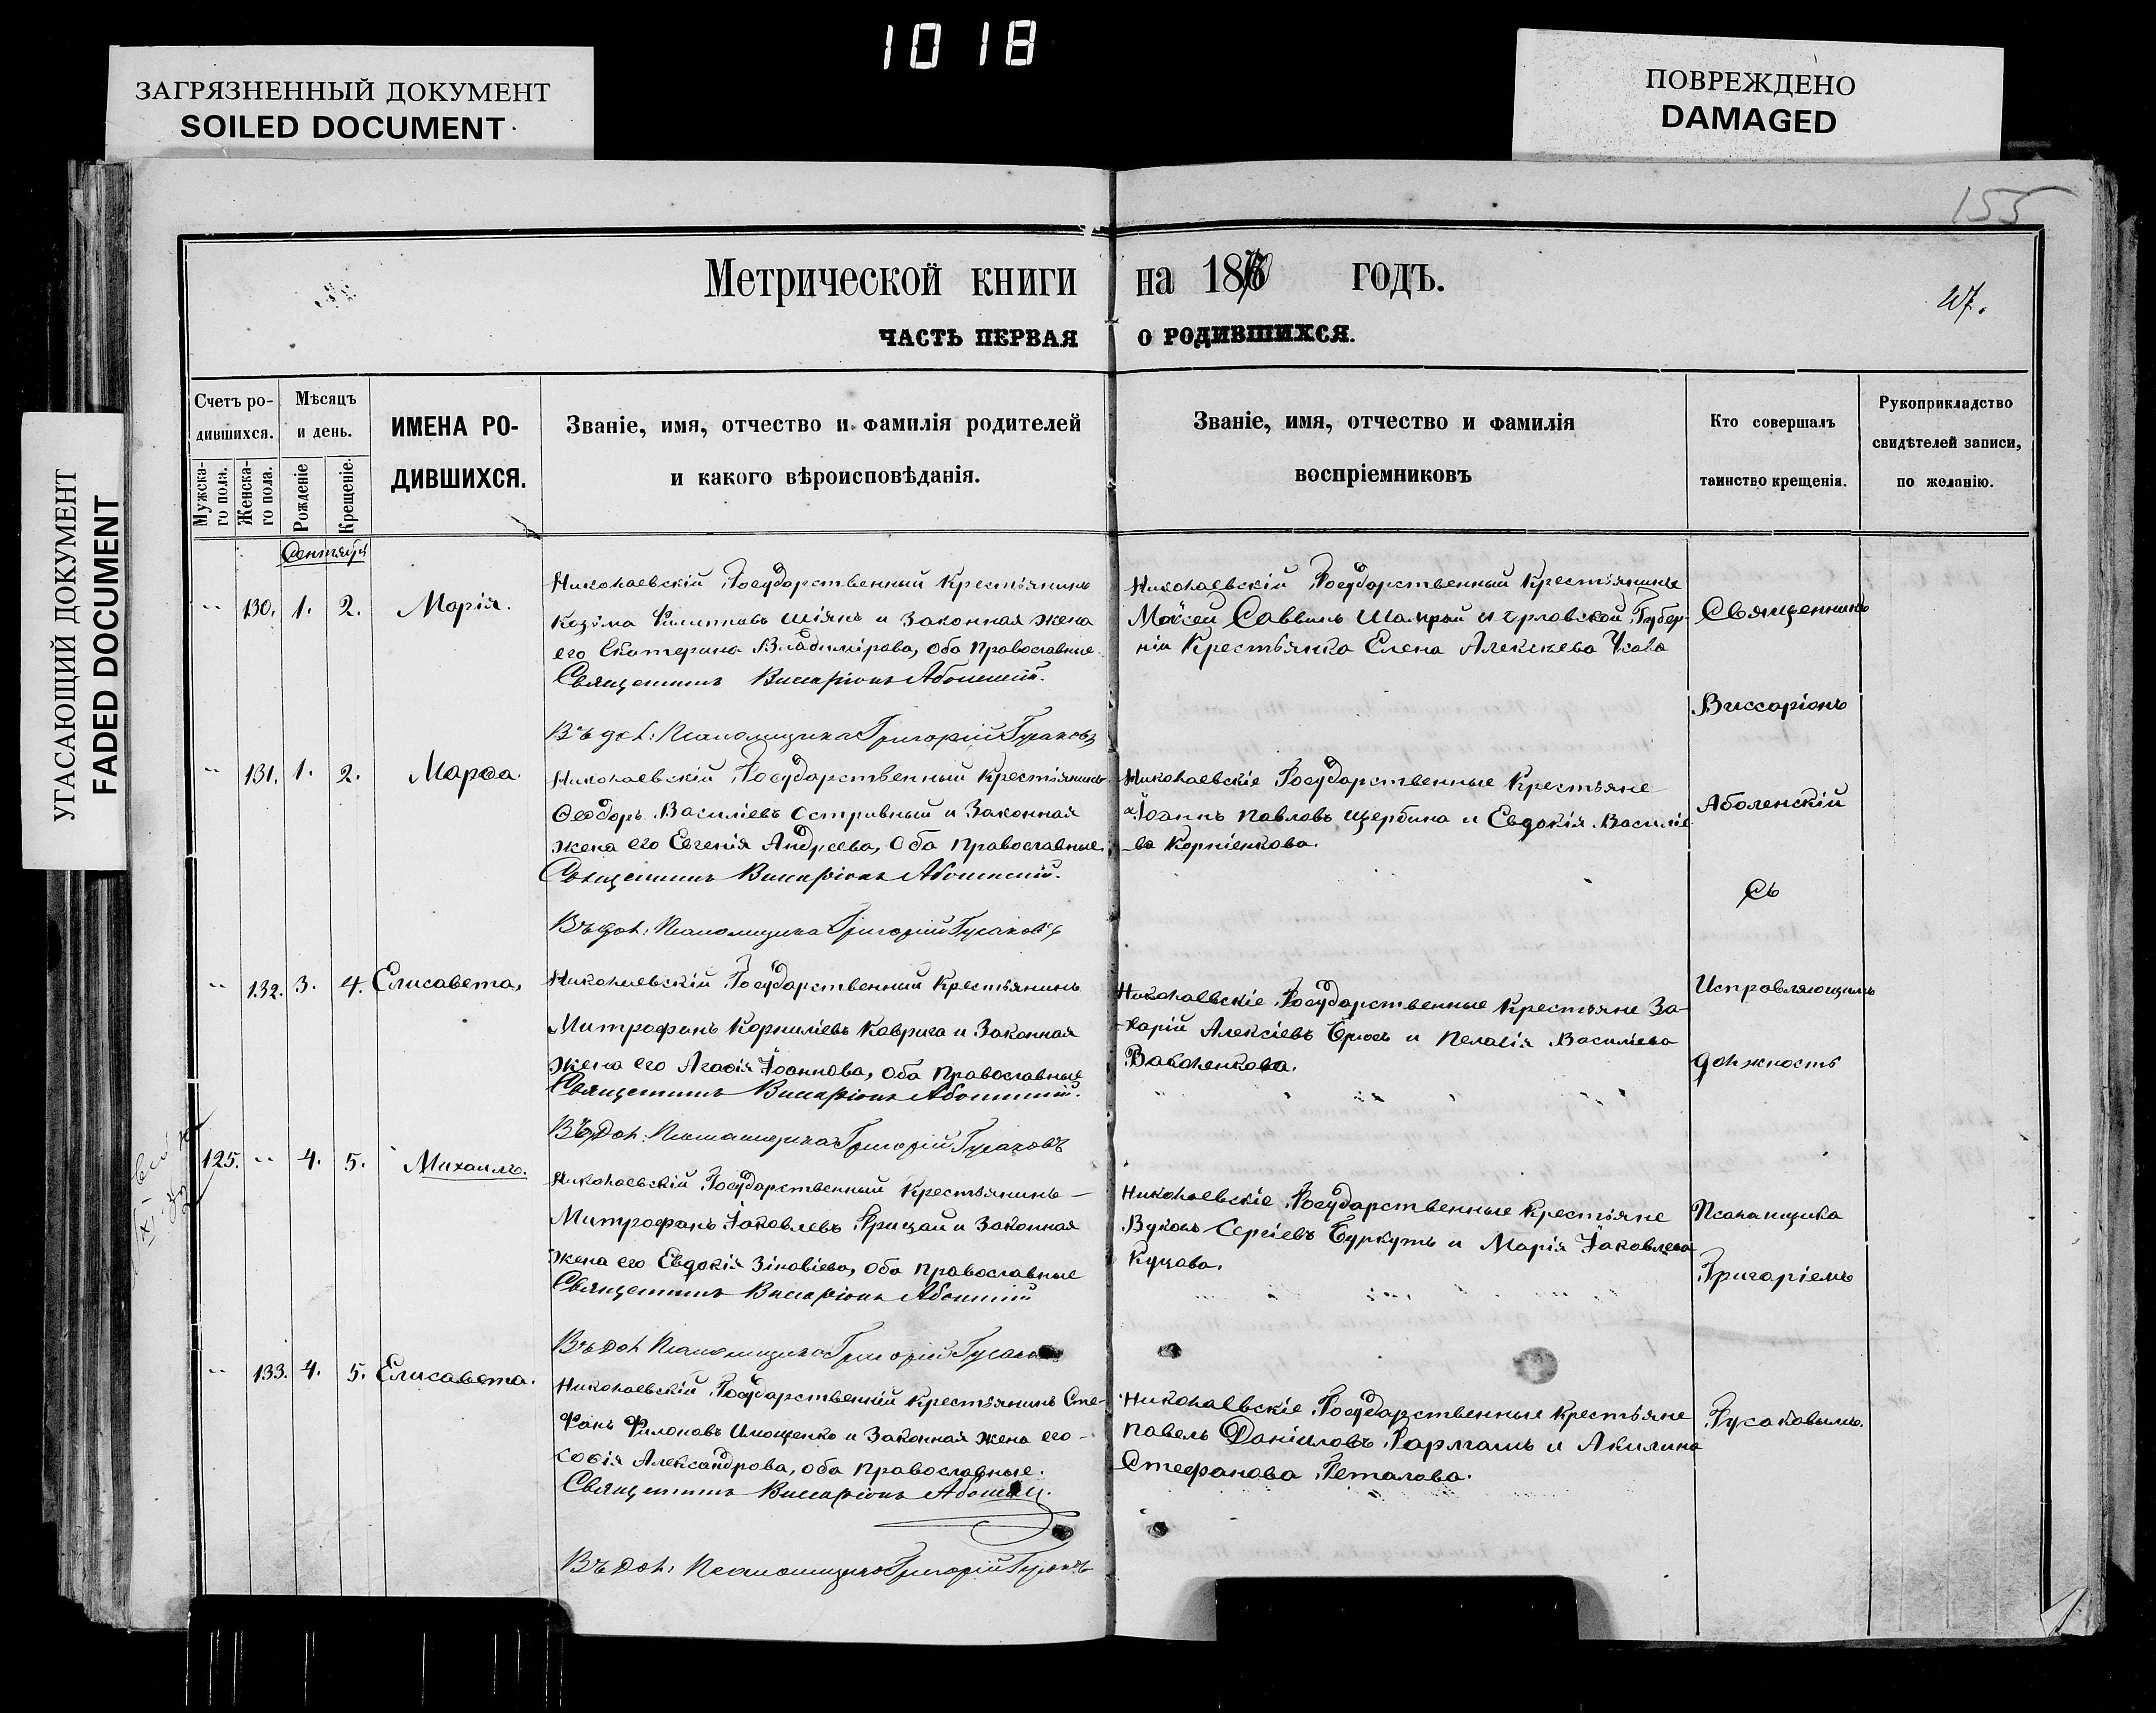 1018
ЗАГРЯЗНЕННЫЙ ДОКУМЕНТ
SOILED DOCUMENT
ПОВРЕЖДЕНО
DAMAGED
УГАСАЮЩИЙ ДОКУМЕНТ
FADED DOCUMENT
155
Метрической книги на 1870 годъ.
ЧАСТЬ ПЕРВАЯ О РОДИВШИХСЯ.
Счетъ ро-
дившихся.
Мужска-
го пола.
Женска-
го пола.
Мѣсяцъ
и день.
Рожденіе
Крещеніе.
ИМЕНА РО-
ДИВШИХСЯ.
Званіе, имя, отчество и фамилія родителей
и какого вѣроисповѣданія.
Званіе, имя, отчество и фамилія
воспріемниковъ
Кто совершалъ
таинство крещенія.
Рукоприкладство
свидѣтелей записи,
по желанію.
Сентябрь
130. 1. 2. Марія.
Николаевскій Государственный Крестьянинъ
Козма Филипповъ Шіянъ и Законная жена
его Екатерина Владимірова, оба Православные
Священникъ Виссаріонъ Аболенскій.
Въ дол: Псаломщика Григорій Гусаковъ
Николаевскій Государственный Крестьянинъ
Моѵсей Саввинъ Шамрай и Орловской Губер-
ніи Крестьянка Елена Алексѣева Усова
131. 1. 2. Марѳа.
Николаевскій Государственный Крестьянинъ
Ѳеодоръ Василіевъ Остривный и Законная
жена его Евгенія Андреева, Оба Православные.
Священникъ Виссаріонъ Аболенскій.
Въ дол: Псаломщика Григорій Гусаковъ
Николаевскіе Государственные Крестьяне
Іоаннъ Павловъ Щербина и Евдокія Василіе
-ва Корніенкова.
132. 3. 4. Елисавета,
Николаевскій Государственный Крестьянинъ
Митрофанъ Корниліевъ Коврига и Законная
жена его Агаѳія Іоаннова, оба Православные
Священникъ Виссаріонъ Аболенскій.
Въ Дол: Псаломщика Григорій Гусаковъ
Николаевскіе Государственные Крестьяне За-
харій Алексіевъ и Пелагія Василіева
125. 4. 5. Михаилъ.
Николаевскій Государственный Крестьянинъ
Митрофанъ Іаковлевъ Грицай и Законная
жена его Евдокія Зіновіева, оба Православные
Священникъ Виссаріонъ Аболенскій
Въ Дол Псаломщика Григорій Гусаковъ
Николаевскіе Государственные Крестьяне
Вуколъ Сергіевъ Буркутъ и Марія Іаковлева
Куцова.
133. 4. 5. Елисавета.
Николаевскій Государственный Крестьянинъ Сте-
фанъ Филоновъ Имощенко и Законная жена его
Софія Александрова, оба Православные.
Священникъ Виссаріонъ Аболенскій.
Въ Дол: Псаломщика Григорій Гусаковъ
Николаевскіе Государственные Крестьяне
Павелъ Даніиловъ Гармашъ и Акилина
Стефанова Геталова.
Священникъ
Виссаріонъ
Аболенскій
Съ
Исправляющимъ
должность
Псаломщика
Григоріемъ
Гусаковымъ.